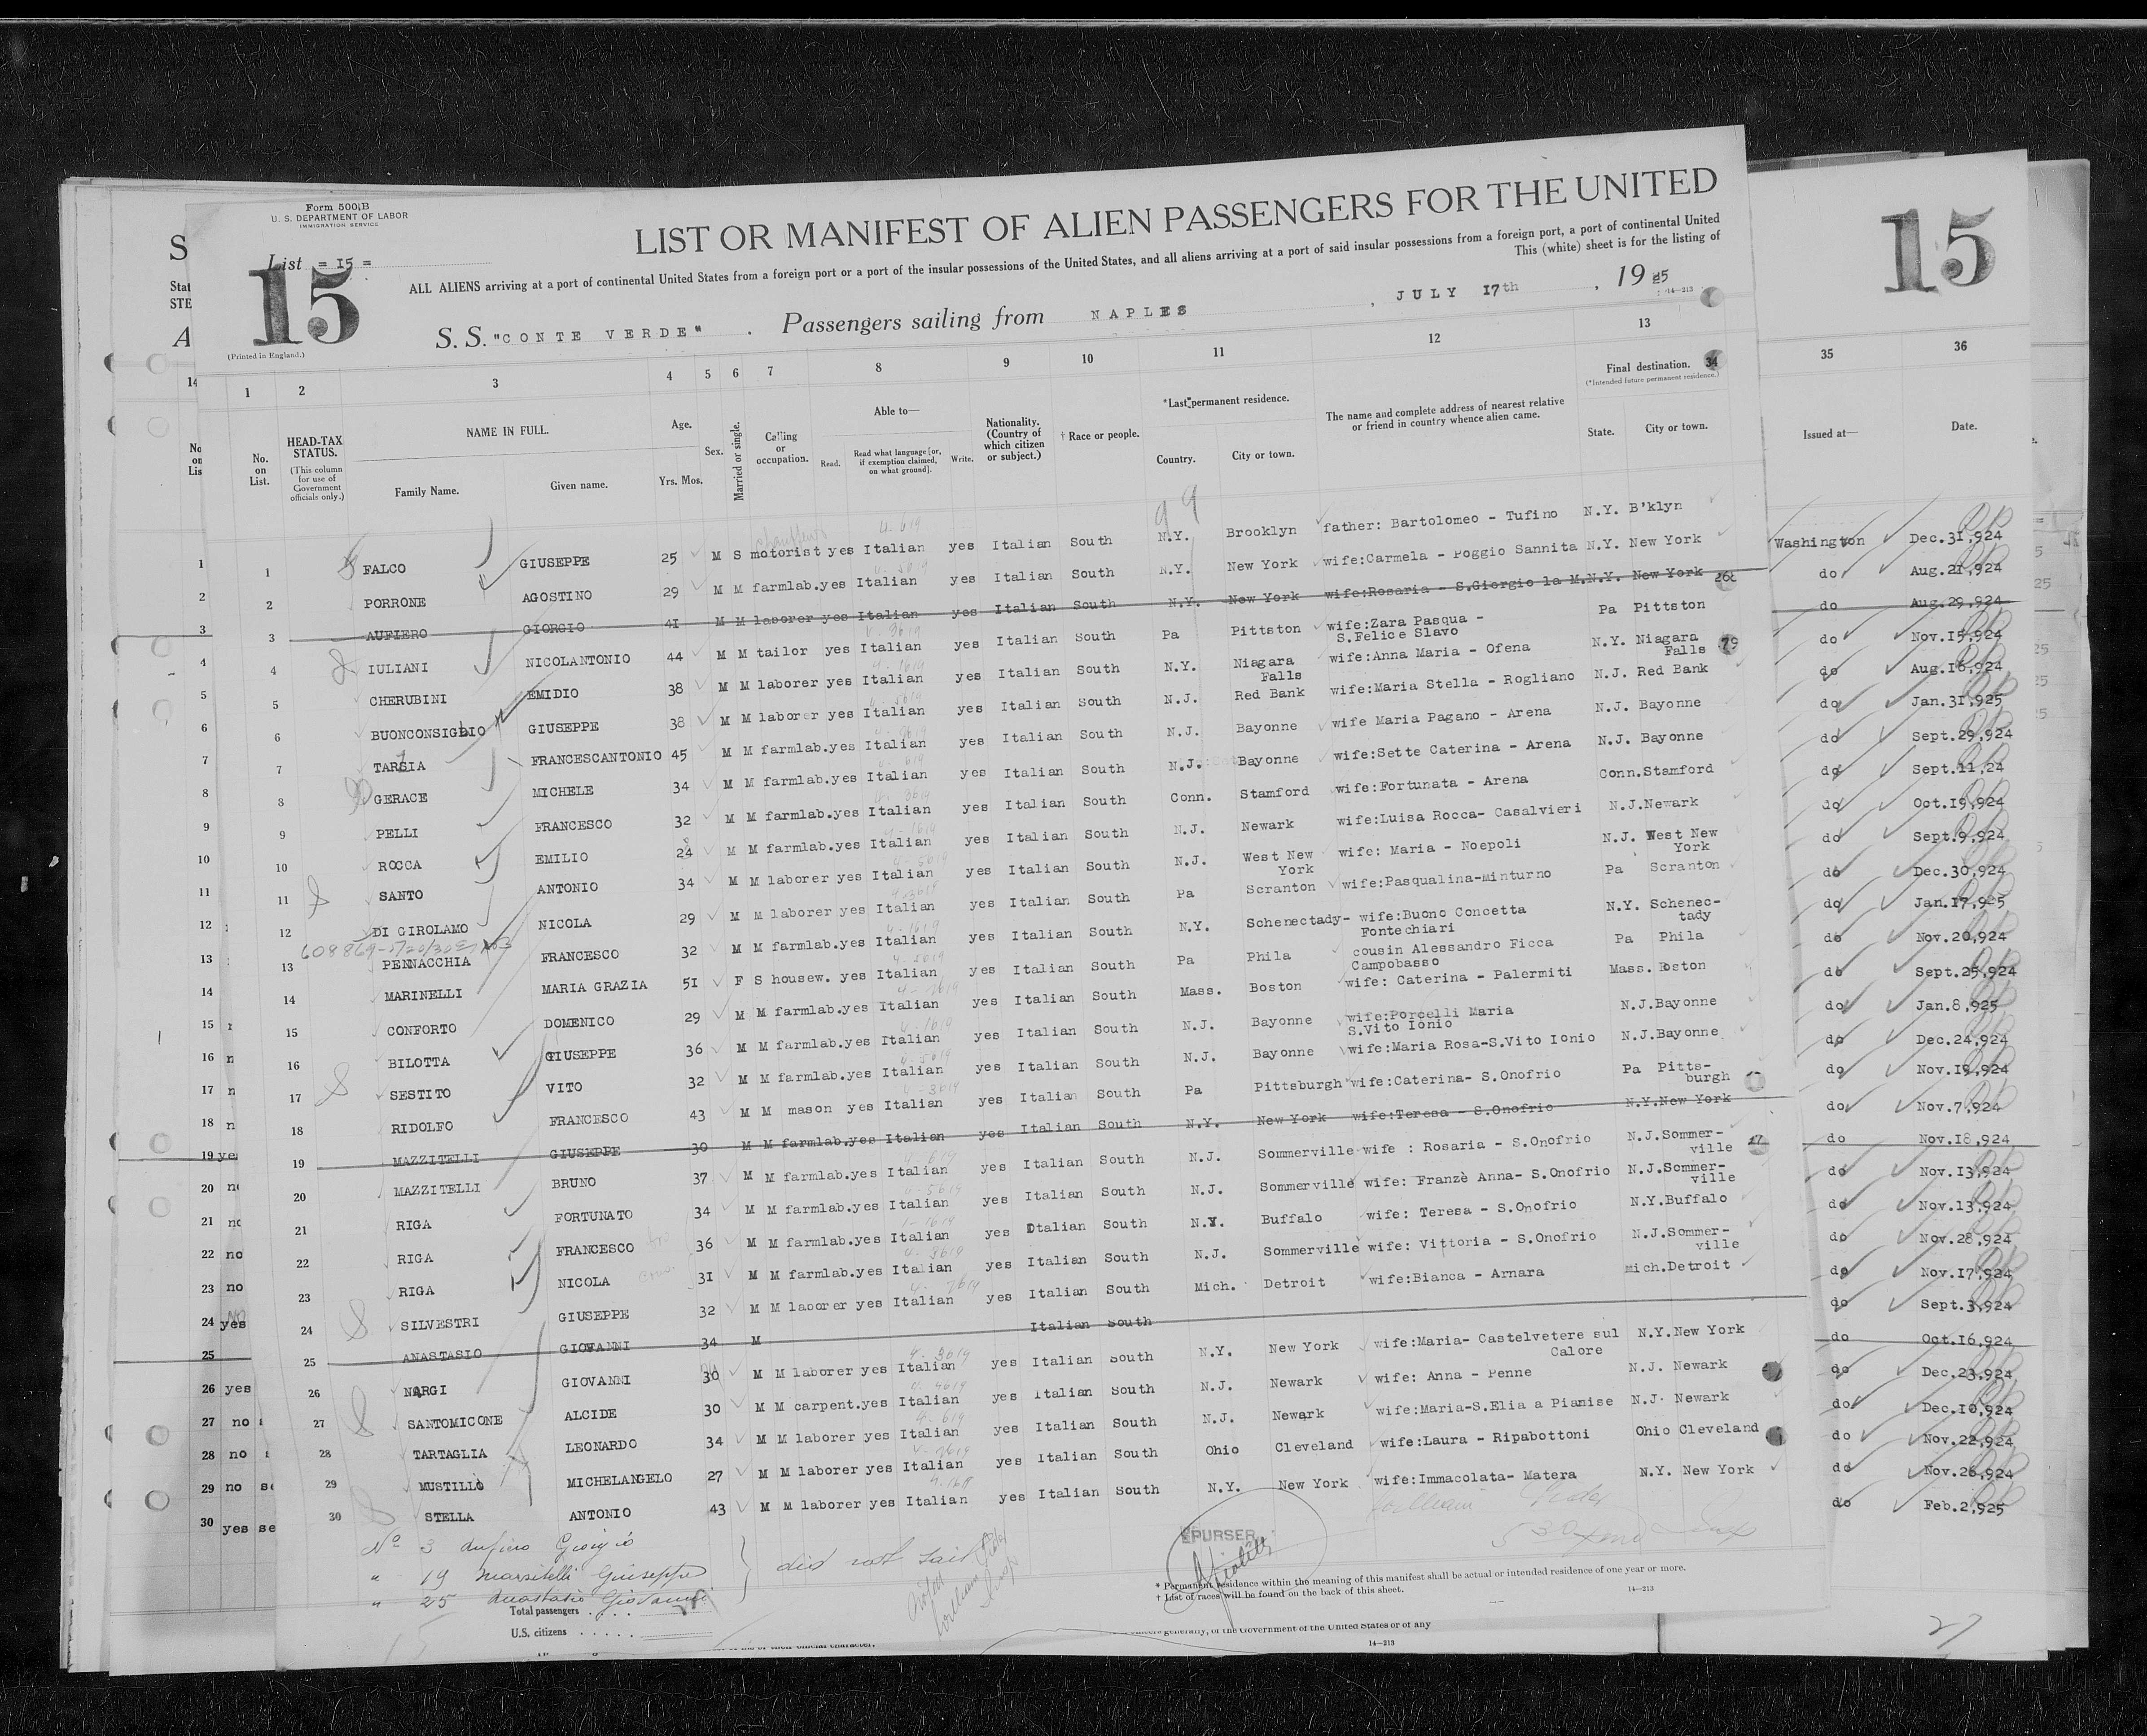 Form 500 B
U. S. DEPARTMENT OF LABOR
IMMIGRATION SERVICE
LIST OR MANIFEST OF ALIEN PASSENGERS FOR THE UNITED
List = 15 =
15
15
ALL ALIENS arriving at a port of continental United States from a foreign port or a port of the insular possessions of the United States, and all aliens arriving at a port of said insular possessions from a foreign port, a port of continental United
This (white) sheet is for the listing of
(Printed in England.)
S. S. "CONTE VERDE" . Passengers sailing from NAPLES , JULY 17th , 19 25
14-213
1 2 3 4 5 6 7 8 9 10 11 12 13 35 36
No. on List. HEAD-TAX STATUS. (This column for use of Government officials only.) NAME IN FULL. Family Name. Given name. Age. Yrs. Mos. Sex. Married or single. Calling or occupation. Able to— Read. Read what language [or, if exemption claimed, on what ground]. Write. Nationality. (Country of which citizen or subject.) † Race or people. *Last permanent residence. Country. City or town. The name and complete address of nearest relative or friend in country whence alien came. Final destination. (*Intended future permanent residence.) State. City or town. Issued at— Date.
1 FALCO GIUSEPPE 25 M S motorist yes Italian yes Italian South N.Y. Brooklyn father: Bartolomeo - Tufino N.Y. B'klyn Washington Dec.31,924
2 PORRONE AGOSTINO 29 M M farmlab. yes Italian yes Italian South N.Y. New York wife:Carmela - Poggio Sannita N.Y. New York do Aug.21,924
3 AUFIERO GIORGIO 41 M M laborer yes Italian yes Italian South N.Y. New York wife:Rosaria - S.Giorgio la M. N.Y. New York do Aug.29,924
4 IULIANI NICOLANTONIO 44 M M tailor yes Italian yes Italian South Pa Pittston wife:Zara Pasqua - S.Felice Slavo Pa Pittston do Nov.15,924
5 CHERUBINI EMIDIO 38 M M laborer yes Italian yes Italian South N.Y. Niagara Falls wife:Anna Maria - Ofena N.Y. Niagara Falls do Aug.16,924
6 BUONCONSIGLIO GIUSEPPE 38 M M laborer yes Italian yes Italian South N.J. Red Bank wife:Maria Stella - Rogliano N.J. Red Bank do Jan.31,925
7 TARSIA FRANCESCANTONIO 45 M M farmlab. yes Italian yes Italian South N.J. Bayonne wife Maria Pagano - Arena N.J. Bayonne do Sept.29,924
8 GERACE MICHELE 34 M M farmlab. yes Italian yes Italian South N.J. Bayonne wife:Sette Caterina - Arena N.J. Bayonne do Sept.11,24
9 PELLI FRANCESCO 32 M M farmlab. yes Italian yes Italian South Conn. Stamford wife:Fortunata - Arena Conn. Stamford do Oct.19,924
10 ROCCA EMILIO 24 M M farmlab. yes Italian yes Italian South N.J. Newark wife:Luisa Rocca- Casalvieri N.J. Newark do Sept.9,924
11 SANTO ANTONIO 34 M M laborer yes Italian yes Italian South N.J. West New York wife: Maria - Noepoli N.J. West New York do Dec.30,924
12 DI GIROLAMO NICOLA 29 M M laborer yes Italian yes Italian South Pa Scranton wife:Pasqualina-Minturno Pa Scranton do Jan.17,925
13 PENNACCHIA FRANCESCO 32 M M farmlab. yes Italian yes Italian South N.Y. Schenectady- wife:Buono Concetta Fontechiari N.Y. Schenec- tady do Nov.20,924
14 MARINELLI MARIA GRAZIA 51 F S housew. yes Italian yes Italian South Pa Phila cousin Alessandro Ficca Campobasso Pa Phila do Sept.25,924
15 CONFORTO DOMENICO 29 M M farmlab. yes Italian yes Italian South Mass. Boston wife: Caterina - Palermiti Mass. Boston do Jan.8,925
16 BILOTTA GIUSEPPE 36 M M farmlab. yes Italian yes Italian South N.J. Bayonne wife:Porcelli Maria S.Vito Ionio N.J. Bayonne do Dec.24,924
17 SESTITO VITO 32 M M farmlab. yes Italian yes Italian South N.J. Bayonne wife:Maria Rosa-S.Vito Ionio N.J. Bayonne do Nov.19,924
18 RIDOLFO FRANCESCO 43 M M mason yes Italian yes Italian South Pa Pittsburgh wife:Caterina- S.Onofrio Pa Pitts- burgh do Nov.7,924
19 MAZZITELLI GIUSEPPE 30 M M farmlab. yes Italian yes Italian South N.Y. New York wife:Teresa - S.Onofrio N.Y. New York do Nov.18,924
20 MAZZITELLI BRUNO 37 M M farmlab. yes Italian yes Italian South N.J. Sommerville wife : Rosaria - S.Onofrio N.J. Sommer- ville do Nov.13,924
21 RIGA FORTUNATO 34 M M farmlab. yes Italian yes Italian South N.J. Sommerville wife: Franzè Anna- S.Onofrio N.J. Sommer- ville do Nov.13,924
22 RIGA FRANCESCO 36 M M farmlab. yes Italian yes Dtalian South N.Y. Buffalo wife: Teresa - S.Onofrio N.Y. Buffalo do Nov.28,924
23 RIGA NICOLA 31 M M farmlab. yes Italian yes Italian South N.J. Sommerville wife: Vittoria - S.Onofrio N.J. Sommer- ville do Nov.17,924
24 SILVESTRI GIUSEPPE 32 M M laborer yes Italian yes Italian South Mich. Detroit wife:Bianca - Arnara Mich. Detroit do Sept.3,924
25 ANASTASIO GIOVANNI 34 M Italian South do Oct.16,924
26 NARGI GIOVANNI 30 M M laborer yes Italian yes Italian South N.Y. New York wife:Maria- Castelvetere sul Calore N.Y. New York do Dec.23,924
27 SANTOMICONE ALCIDE 30 M M carpent. yes Italian yes Italian South N.J. Newark wife: Anna - Penne N.J. Newark do Dec.10,924
28 TARTAGLIA LEONARDO 34 M M laborer yes Italian yes Italian South N.J. Newark wife:Maria-S.Elia a Pianise N.J. Newark do Nov.22,924
29 MUSTILLO MICHELANGELO 27 M M laborer yes Italian yes Italian South Ohio Cleveland wife:Laura - Ripabottoni Ohio Cleveland do Nov.26,924
30 STELLA ANTONIO 43 M M laborer yes Italian yes Italian South N.Y. New York wife:Immacolata- Matera N.Y. New York do Feb.2,925
No 3 Aufiero Giorgio
" 19 Marsitelli Giuseppe
" 25 Anastasio Giovanni
did not sail
PURSER
Total passengers . . . .
U.S. citizens . . . . .
* Permanent residence within the meaning of this manifest shall be actual or intended residence of one year or more.
† List of races will be found on the back of this sheet.
14-213
generally, of the Government of the United States or of any
14-213
27